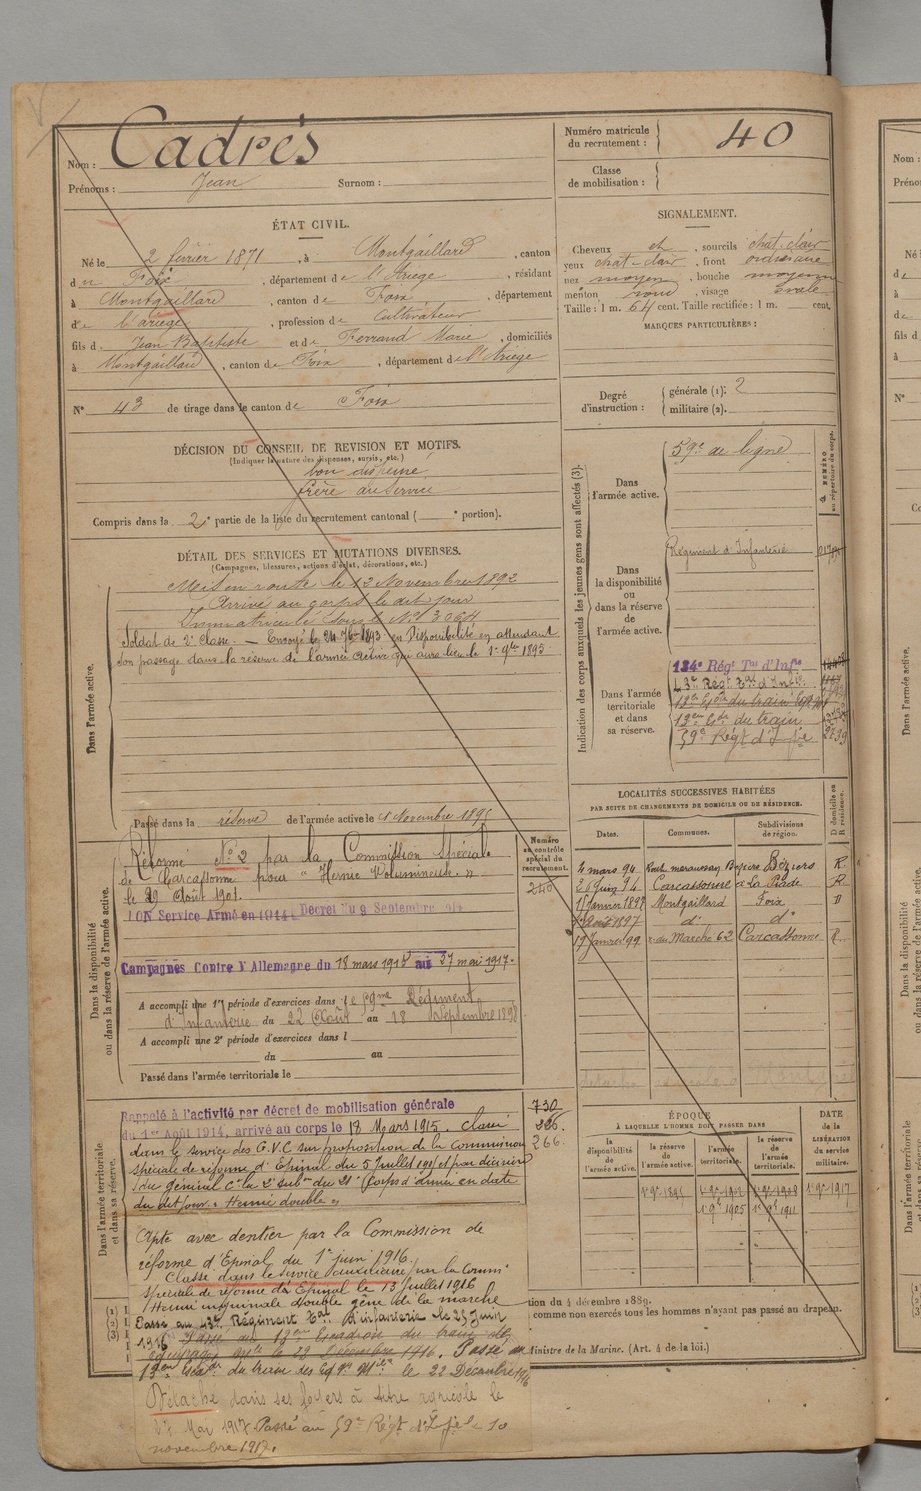 Nom : Cadrès
Prénoms : Jean Surnom :
Numéro matricule du recrutement : 40
Classe de mobilisation :
ÉTAT CIVIL.
Né le 2 février 1871, à Montgaillard, canton
de Foix, département de l'Ariège, résidant
à Montgaillard, canton de Foix, département
de l'ariège, profession de Cultivateur
fils d. Jean Baptiste et de Ferrand Marie, domiciliés
à Montgaillard, canton de Foix, département de l'Ariège
N° 43 de tirage dans le canton de Foix
SIGNALEMENT.
Cheveux et, sourcils chat-clair
yeux chat-clair, front ordinaire
nez moyen, bouche moyenne
menton rond, visage ovale
Taille : 1 m. 64 cent. Taille rectifiée : 1 m. cent.
MARQUES PARTICULIÈRES :
Degré d'instruction : générale (1): 2
militaire (2).
DÉCISION DU CONSEIL DE REVISION ET MOTIFS.
(Indiquer la nature des dispenses, sursis, etc.)
bon dispensé
frère au service
Compris dans la 2e partie de la liste du recrutement cantonal ( e portion).
DÉTAIL DES SERVICES ET MUTATIONS DIVERSES.
(Campagnes, blessures, actions d'éclat, décorations, etc.)
Dans l'armée active.
Mis en route le 12 Novembre 1892
Arrivé au corps le dit jour
Immatriculé sous le N°
Soldat de 2e Classe. — Envoyé le 24 7bre 1893 en Disponibilité en attendant
son passage dans la réserve de l'armée active qui aura lieu le 1er 9bre 1895
Passé dans la réserve de l'armée active le 1 Novembre 1895
Indication des corps auxquels les jeunes gens sont affectés (3).
NUMÉRO au répertoire du corps.
Dans l'armée active.
59e de ligne
Dans la disponibilité ou dans la réserve de l'armée active.
Régiment d'Infanterie
Dans l'armée territoriale et dans sa réserve.
134e Régt Tal d'Infie
43e Régt Tal d'Infie
18e Esc. du train
13e Esc. du train
59e Régt d'Infie
LOCALITÉS SUCCESSIVES HABITÉES
PAR SUITE DE CHANGEMENTS DE DOMICILE OU DE RÉSIDENCE.
Dates. Communes. Subdivisions de région. D domicile ou R résidence.
4 mars 94 Béziers R
26 Juin 94 Carcassonne R
15 Janvier 1897 Montgaillard Foix D
Août 1897 d° d°
17 Janvier 99 r. du Marché 62 Carcassonne R.
Dans la disponibilité ou dans la réserve de l'armée active.
Numéro au contrôle spécial du recrutement.
240
Réformé N° 2 par la Commission Spéciale
de Carcassonne pour "Hernie Volumineuse."
le 29 Août 1901.
BON Service Armé en 1914. Décret du 9 Septembre 1914
Campagnes Contre l'Allemagne du 18 mars 1915 au 27 mai 1917.
A accompli une 1re période d'exercices dans le 59me Régiment
d'Infanterie du 22 Août au 18 Septembre 1898
A accompli une 2e période d'exercices dans l
du au
Passé dans l'armée territoriale le
Dans l'armée territoriale et dans sa réserve.
730
266.
Rappelé à l'activité par décret de mobilisation générale
du 1er Août 1914, arrivé au corps le 18 Mars 1915. Classé
dans le service des G.V.C sur proposition de la Commission
spéciale de réforme d'Epinal du 5 Juillet 1915 et par décision
du général Ct la 2e subon du 21e Corps d'armée en date
du dit jour. "Hernie double"
Apte avec dentier par la Commission de
réforme d'Epinal du 1er juin 1916.
Classé dans le service auxiliaire par la Comm.
spéciale de réforme d'Epinal le 13 Juillet 1916
Hernie inguinale double gêne de la marche
Passé au 43e Régiment Tal d'infanterie le 25 Juin
1916 Passé au 18e Escadron du train des
équipages Mre le 22 Décembre 1916. Passé au
13e Escdn du train des Eqges Mres le 22 Décembre 1916
Détaché dans ses foyers à titre agricole le
Mai 1917 Passé au 59e Régt d'Infie le 10
novembre 1917.
ÉPOQUE
À LAQUELLE L'HOMME DOIT PASSER DANS
la disponibilité de l'armée active. la réserve de l'armée active. l'armée territoriale. la réserve de l'armée territoriale.
DATE de la LIBÉRATION du service militaire.
1er 9bre 1895 1er 9bre 1902 1er 9bre 1908 1er 9bre 1917
1er 9bre 1905 1er 9bre 1911
tion du 4 décembre 1889.
comme non exercés tous les hommes n'ayant pas passé au drapeau.
Ministre de la Marine. (Art. 4 de la loi.)